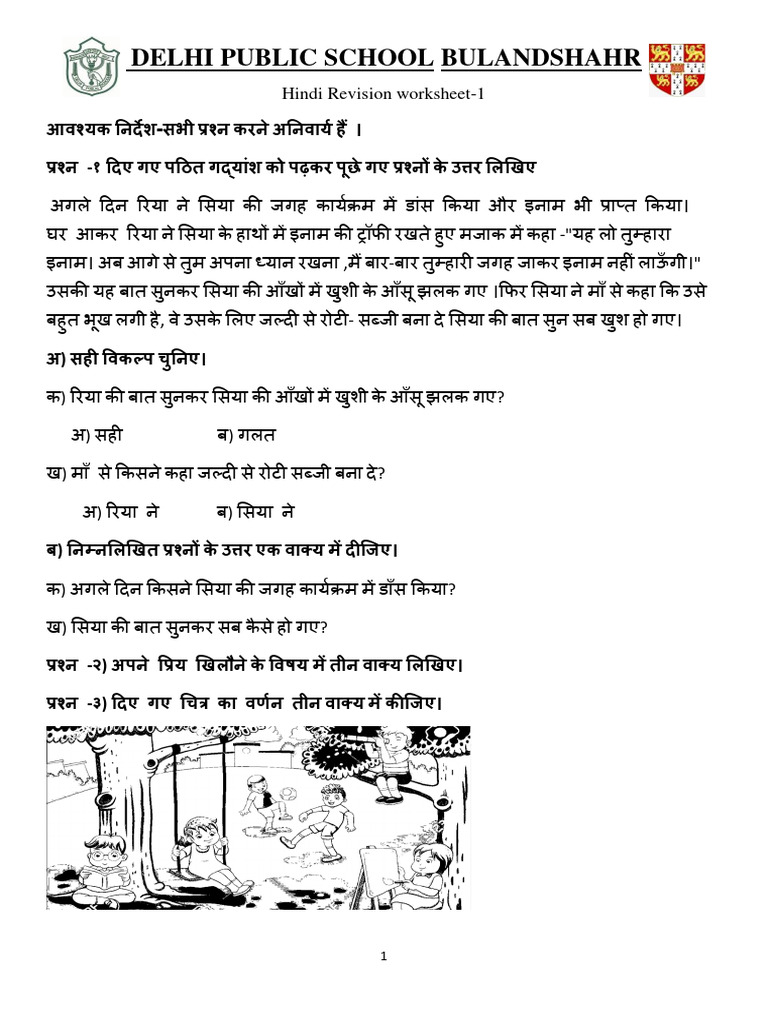 DELHI PUBLIC SCHOOL BULANDSHAHR
Hindi Revision worksheet-1
आवश्यक निर्देश-सभी प्रश्न करने अनिवार्य हैं ।
प्रश्न -१ दिए गए पठित गद्यांश को पढ़कर पूछे गए प्रश्नों के उत्तर लिखिए
अगले दिन रिया ने सिया की जगह कार्यक्रम में डांस किया और इनाम भी प्राप्त किया।
घर आकर रिया ने सिया के हाथों में इनाम की ट्रॉफी रखते हुए मजाक में कहा -"यह लो तुम्हारा
इनाम। अब आगे से तुम अपना ध्यान रखना ,मैं बार-बार तुम्हारी जगह जाकर इनाम नहीं लाऊँगी।"
उसकी यह बात सुनकर सिया की आँखों में खुशी के आँसू झलक गए ।फिर सिया ने माँ से कहा कि उसे
बहुत भूख लगी है, वे उसके लिए जल्दी से रोटी- सब्जी बना दे सिया की बात सुन सब खुश हो गए।
अ) सही विकल्प चुनिए।
क) रिया की बात सुनकर सिया की आँखों में खुशी के आँसू झलक गए?
अ) सही ब) गलत
ख) माँ से किसने कहा जल्दी से रोटी सब्जी बना दे?
अ) रिया ने ब) सिया ने
ब) निम्नलिखित प्रश्नों के उत्तर एक वाक्य में दीजिए।
क) अगले दिन किसने सिया की जगह कार्यक्रम में डाँस किया?
ख) सिया की बात सुनकर सब कैसे हो गए?
प्रश्न -२) अपने प्रिय खिलौने के विषय में तीन वाक्य लिखिए।
प्रश्न -३) दिए गए चित्र का वर्णन तीन वाक्य में कीजिए।
1